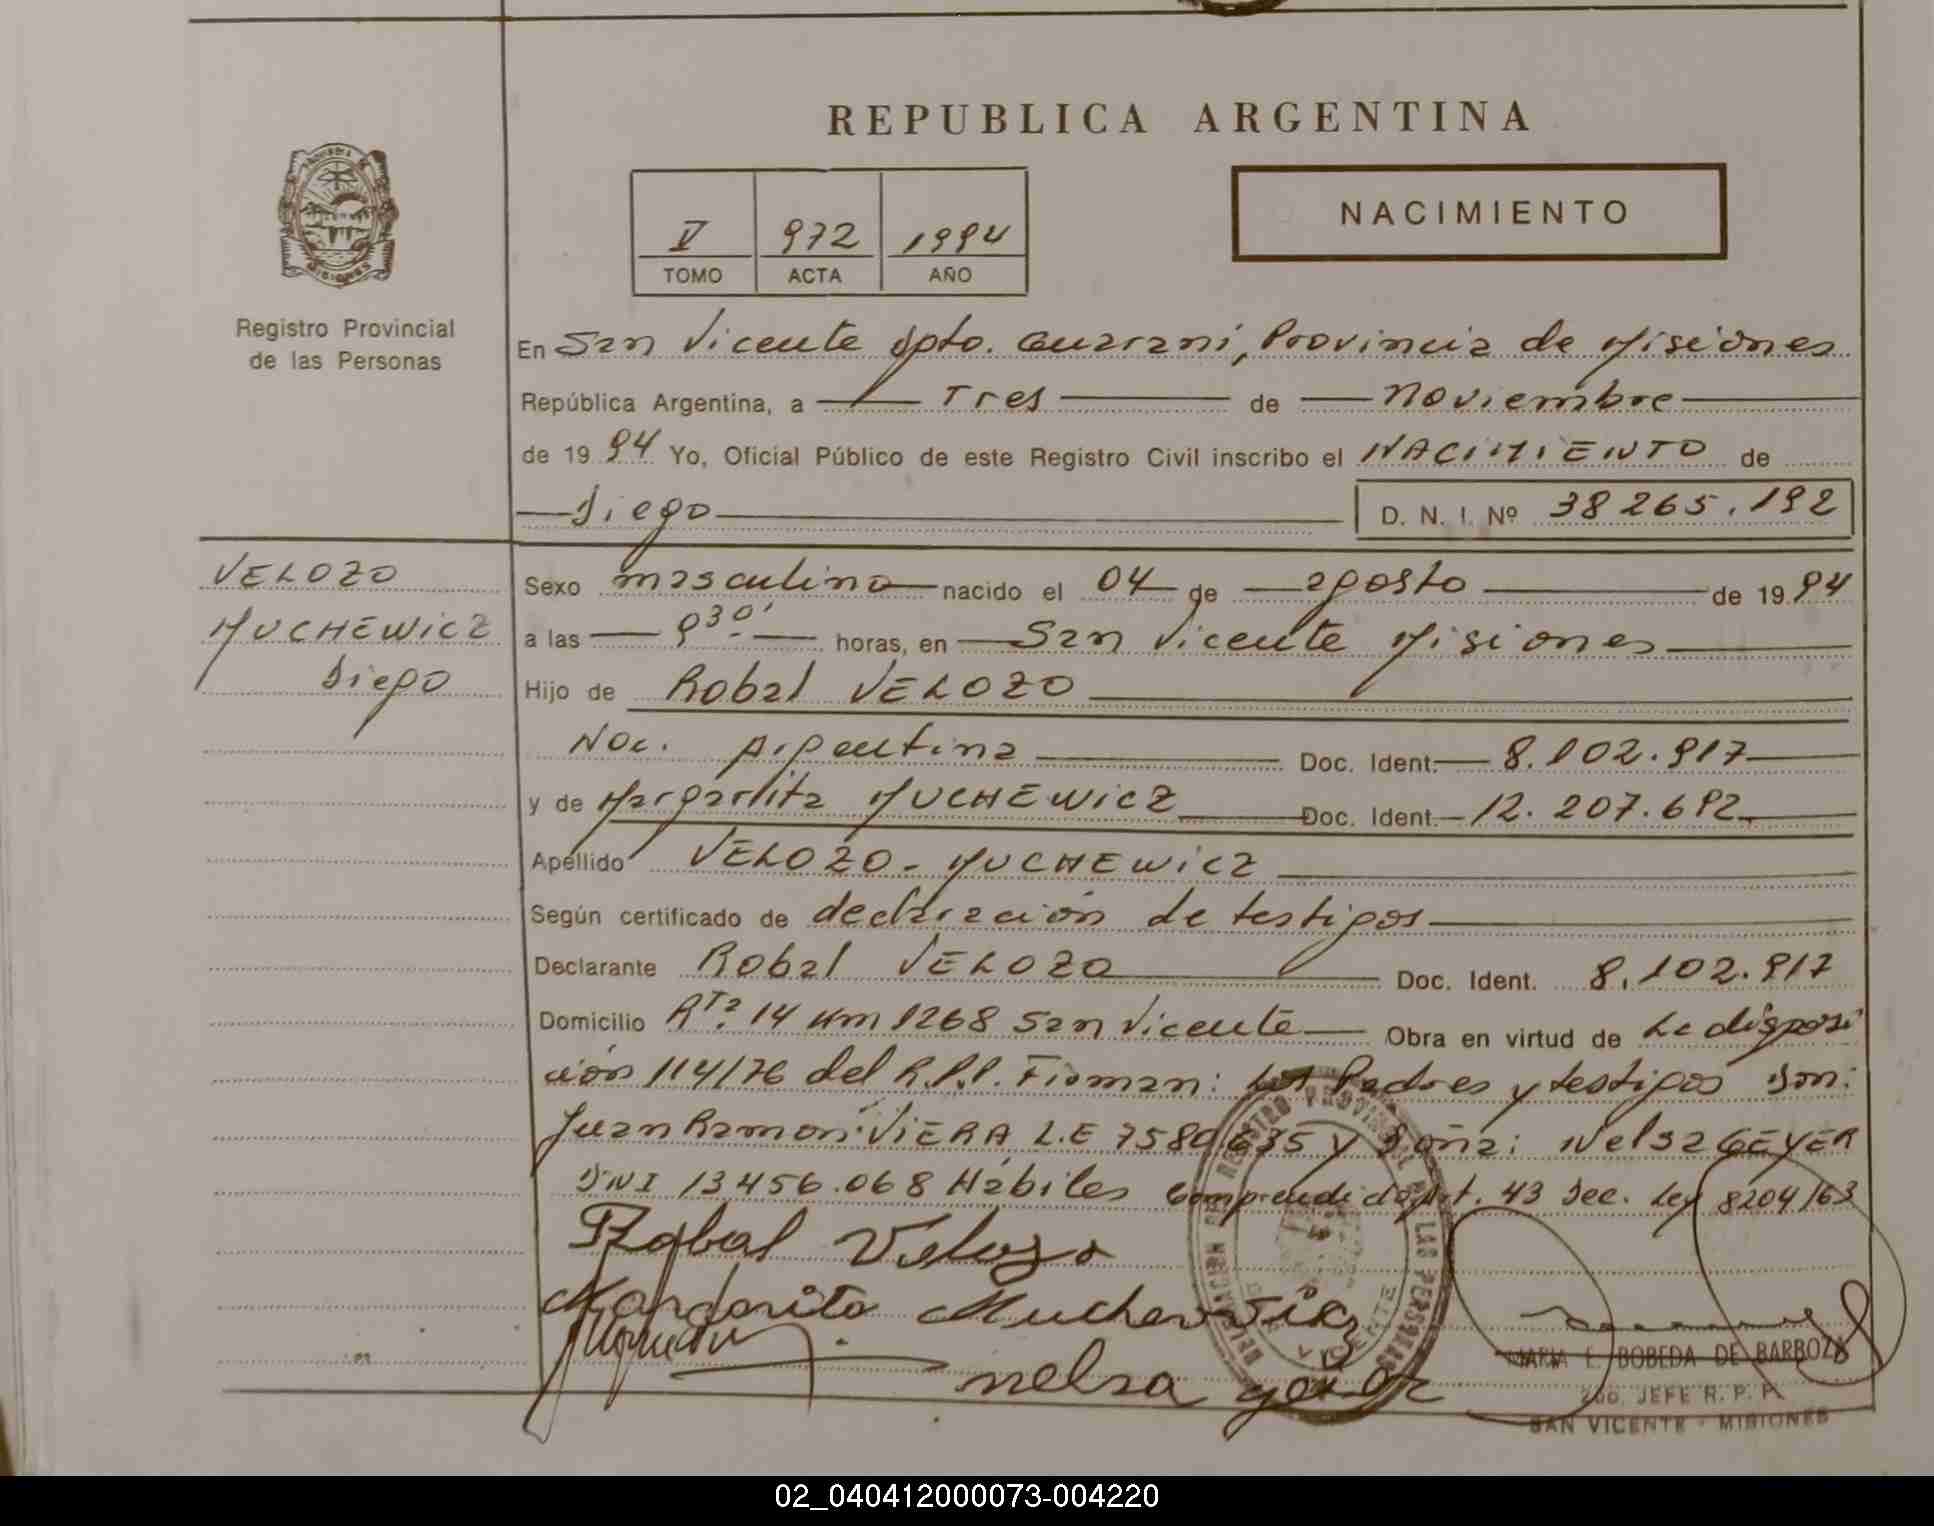 REPUBLICA ARGENTINA
NACIMIENTO
V 972 1994
TOMO ACTA AÑO
Registro Provincial
de las Personas
En San Vicente Dpto. Guarani, Provincia de Misiones
República Argentina, a Tres de Noviembre
de 1994 Yo, Oficial Público de este Registro Civil inscribo el NACIMIENTO de
Diego D. N. I. Nº 38265.192
VELOZO
MUCHEWICZ
Diego
Sexo masculino nacido el 04 de agosto de 1994
a las 9 30' horas, en San Vicente Misiones
Hijo de Robal VELOZO
Nac. Argentina Doc. Ident. 8.102.917
y de Margarita MUCHEWICZ Doc. Ident. 12.207.692
Apellido VELOZO - MUCHEWICZ
Según certificado de declaración de testigos
Declarante Robal VELOZO Doc. Ident. 8.102.917
Domicilio Rta. 14 Km 1268 San Vicente Obra en virtud de La disposi
ción 114/76 del R.P.P. Firman: Los Padres y testigos Son:
Juan Ramon VIERA L.E 7580.635 y Doña: Nelsa GEYER
DNI 13456.068 Hábiles Comprendido Art. 43 Dec. Ley 8204/63
Robal Velozo
Margarita Muchewicz
nelsa geyer
MARIA E. BOBEDA DE BARBOZA
2do. JEFE R. P. P.
SAN VICENTE - MISIONES
02_040412000073-004220